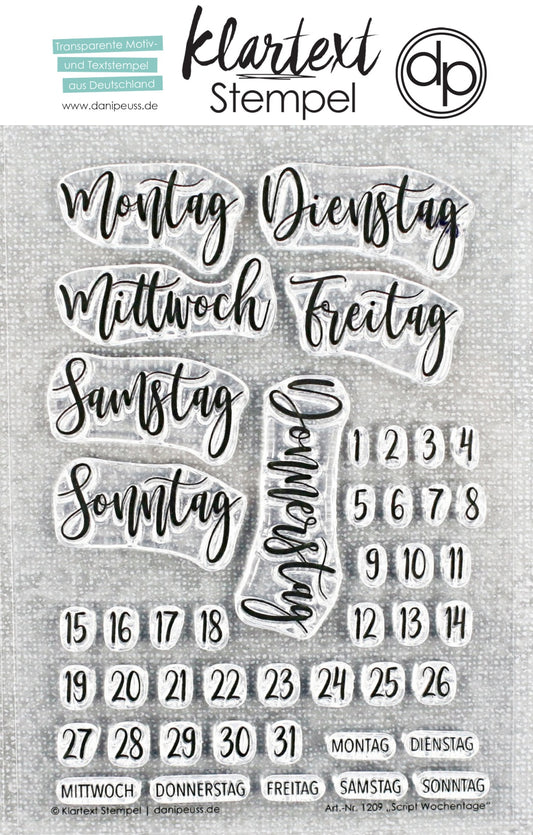 Transparente Motiv-
und Textstempel
aus Deutschland
www.danipeuss.de
klartext
Stempel
dp
Montag
Dienstag
Mittwoch
Freitag
Samstag
Donnerstag
Sonntag
1 2 3 4
5 6 7 8
9 10 11
12 13 14
15 16 17 18
19 20 21 22 23 24 25 26
27 28 29 30 31 MONTAG DIENSTAG
MITTWOCH DONNERSTAG FREITAG SAMSTAG SONNTAG
© Klartext Stempel | danipeuss.de Art.-Nr. 1209 „Script Wochentage"